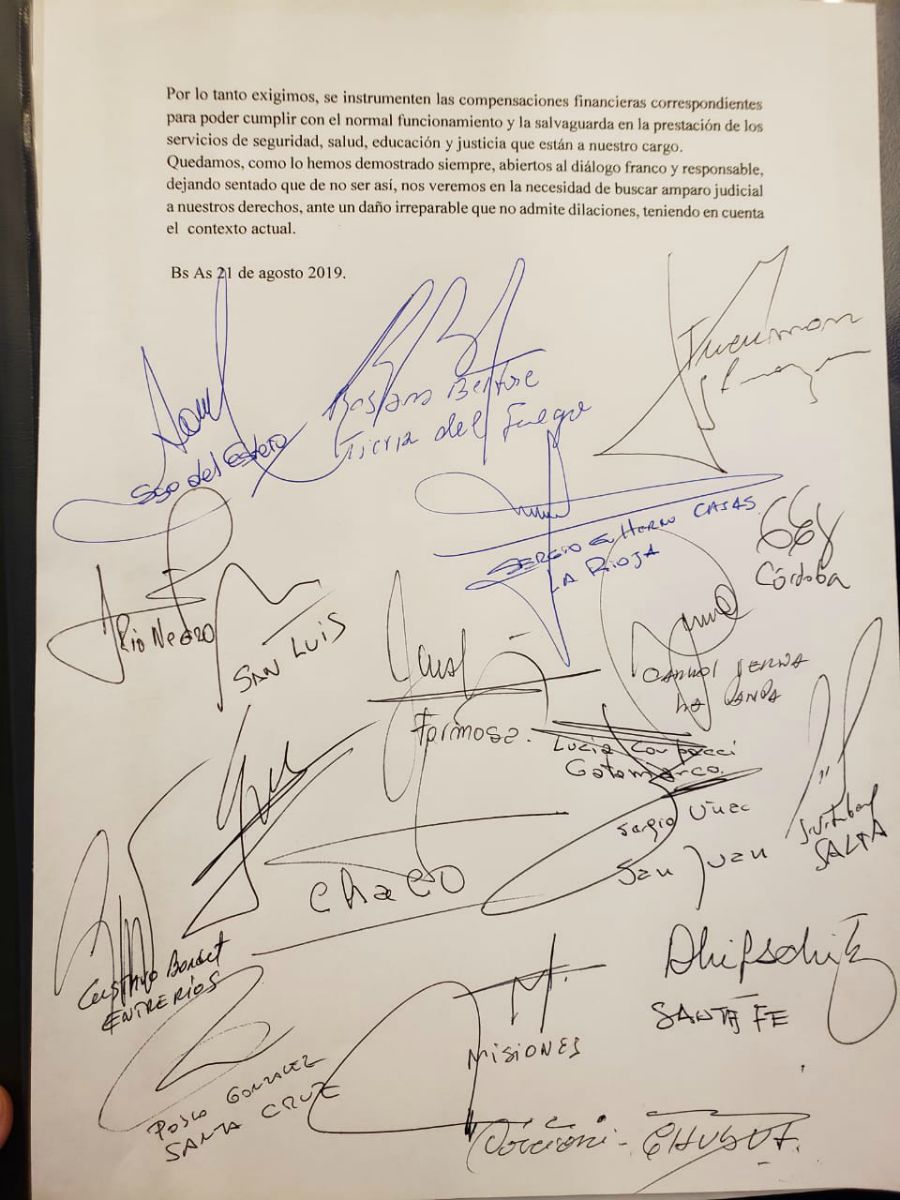 Por lo tanto exigimos, se instrumenten las compensaciones financieras correspondientes
para poder cumplir con el normal funcionamiento y la salvaguarda en la prestación de los
servicios de seguridad, salud, educación y justicia que están a nuestro cargo.
Quedamos, como lo hemos demostrado siempre, abiertos al diálogo franco y responsable,
dejando sentado que de no ser así, nos veremos en la necesidad de buscar amparo judicial
a nuestros derechos, ante un daño irreparable que no admite dilaciones, teniendo en cuenta
el contexto actual.
Bs As 21 de agosto 2019.
Tucuman
Tierra del Fuego
Sgo del Estero
SERGIO G. CASAS
LA RIOJA
Córdoba
Río Negro
SAN LUIS
LA PAMPA
Formosa.
Lucia Corpacci
Catamarca.
Sergio Uñac
San Juan
SALTA
Chaco
Gustavo Bordet
ENTRE RÍOS
SANTA FE
MISIONES
GONZALEZ
SANTA CRUZ
CHUBUT.